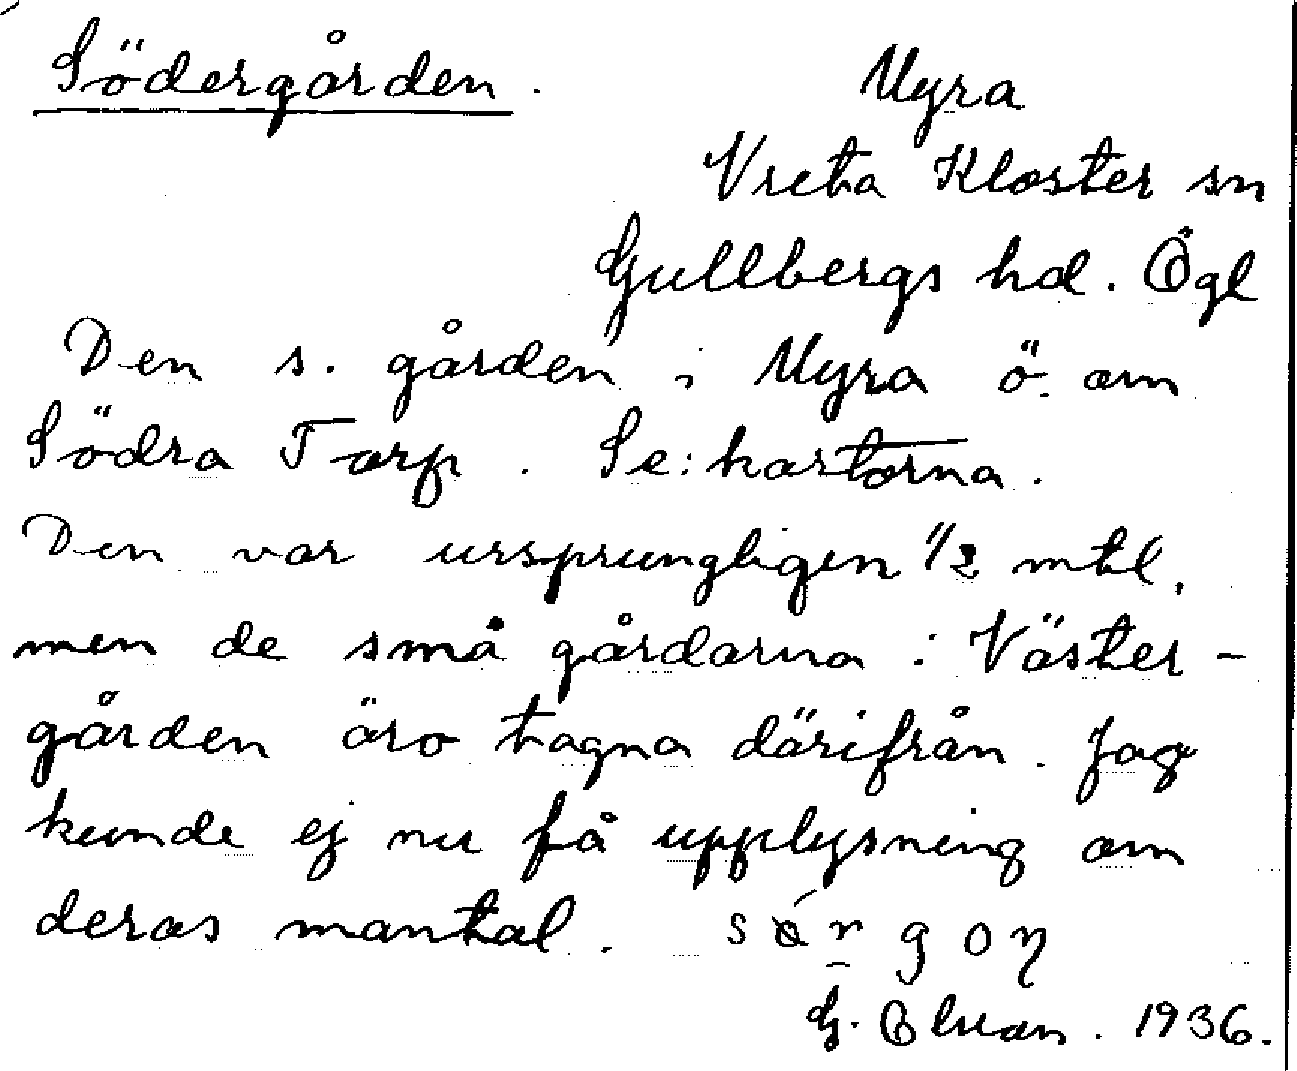 Södergården.
Myra
Vreta Kloster sn
Gullbergs hd. Ögl
Den s. gården i Myra ö. om
Södra Torp. Se: kartorna.
Den var ursprungligen 1/2 mtl,
men de små gårdarna i Väster-
gården äro tagna därifrån. Jag
kunde ej nu få upplysning om
deras mantal.
G. 1936.